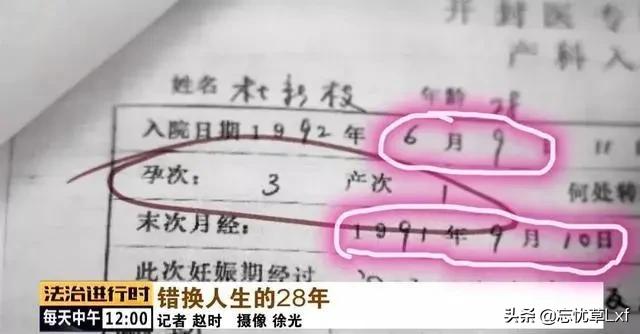 开封医专
产科入
姓名 杜新枝 年龄 28
入院日期1992年6月9日
孕次: 3 产次 1 何处转
末次月经: 1991年9月10日
此次妊娠期经过
法治进行时 错换人生的28年
每天中午 12:00 记者 赵时 摄像 徐光
头条 @忘忧草Lxf